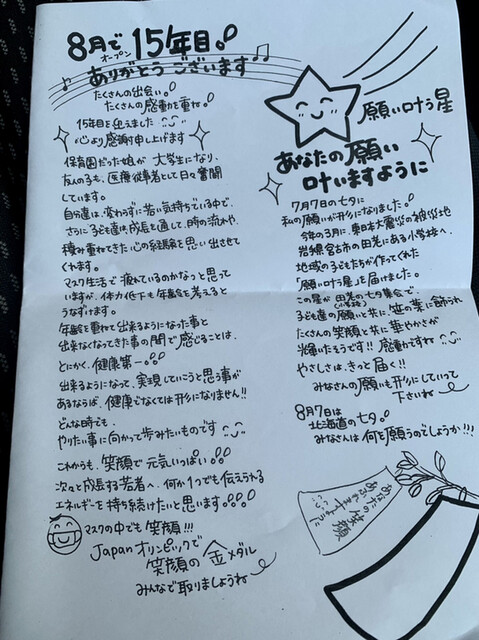 8月で15年目!!
オープン
ありがとうございます
たくさんの出会い。
たくさんの感動を重ね。
15年目を迎えました
心より感謝申し上げます
保育園だった娘が 大学生になり、
友人の子も、医療従事者として日々奮闘
しています。
自分達は、変わらずに若い気持ちでいる中で、
さらに子ども達は、成長を通して、時の流れや、
積み重ねてきた心の経験を思い出させて
くれます。
マスク生活で疲れているのかなっと思って
いますが、体力低下も年齢を考えると
うなずけます。
年齢を重ねて出来るようになった事と
出来なくなってきた事の間で感じることは、
とにかく、健康第一。!!
出来るようになって、実現していこうと思う事が
あるならば、健康でなくては形になりません!!
どんな時でも、
やりたい事に向かって歩みたいものです
これからも、笑顔で元気いっぱい。!!
次々と成長する若者へ、何か1つでも伝えられる
エネルギーを持ち続けたいと思います!!!
マスクの中でも笑顔!!!
Japanオリンピックで
笑顔の金メダル
みんなで取りましょうね
願い叶う星
あなたの願い
叶いますように
7月7日の七夕に
私の願いが形になりました。
今年の3月に、東日本大震災の被災地
岩手県宮古市の田老にある小学校へ、
地域の子どもたちが作ってくれた
「願い叶う星」を届けました。
この星が 田老の七夕集会で、
(小学校)
子ども達の願いと共に、笹の葉に飾られ
たくさんの笑顔と共に華やかさが
輝いたそうです!! 感動ですね
やさしさは、きっと届く!!
みなさんの願いも形にしていって
下さいね
8月7日は
北海道の七夕。
みなさんは 何を願うのでしょうか!!!
あなたの笑顔